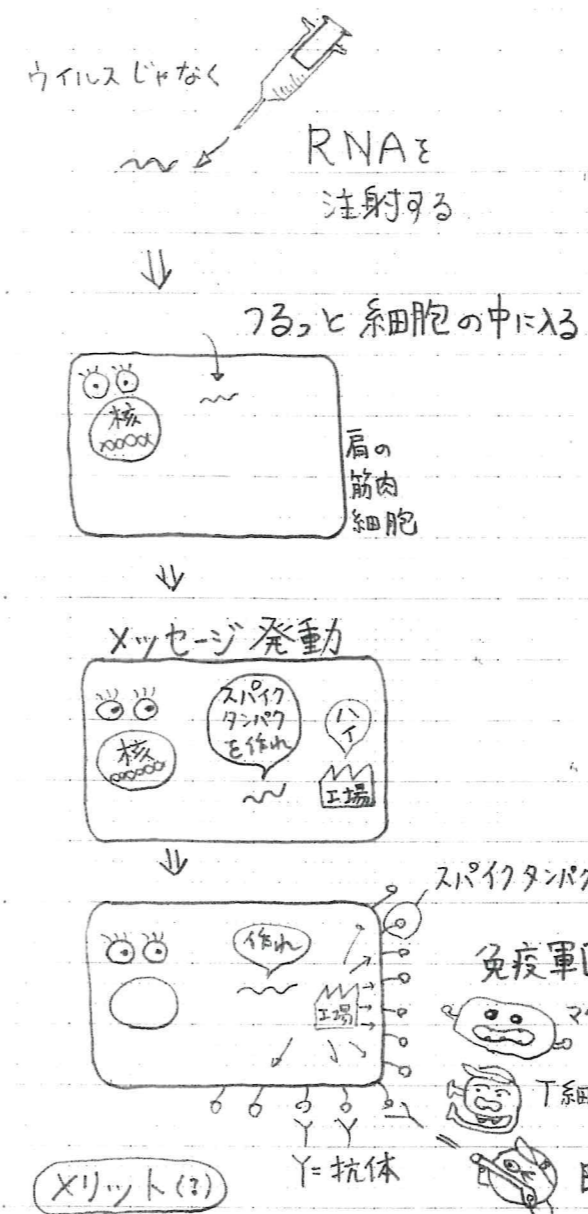 ウイルスじゃなく
RNAを
注射する
つるっと細胞の中に入る
核
肩の
筋肉
細胞
メッセージ発動
スパイク
タンパク
を作れ
ハイ
核
工場
スパイクタンパク
作れ
工場
免疫軍
T細
Y=抗体
メリット(?)